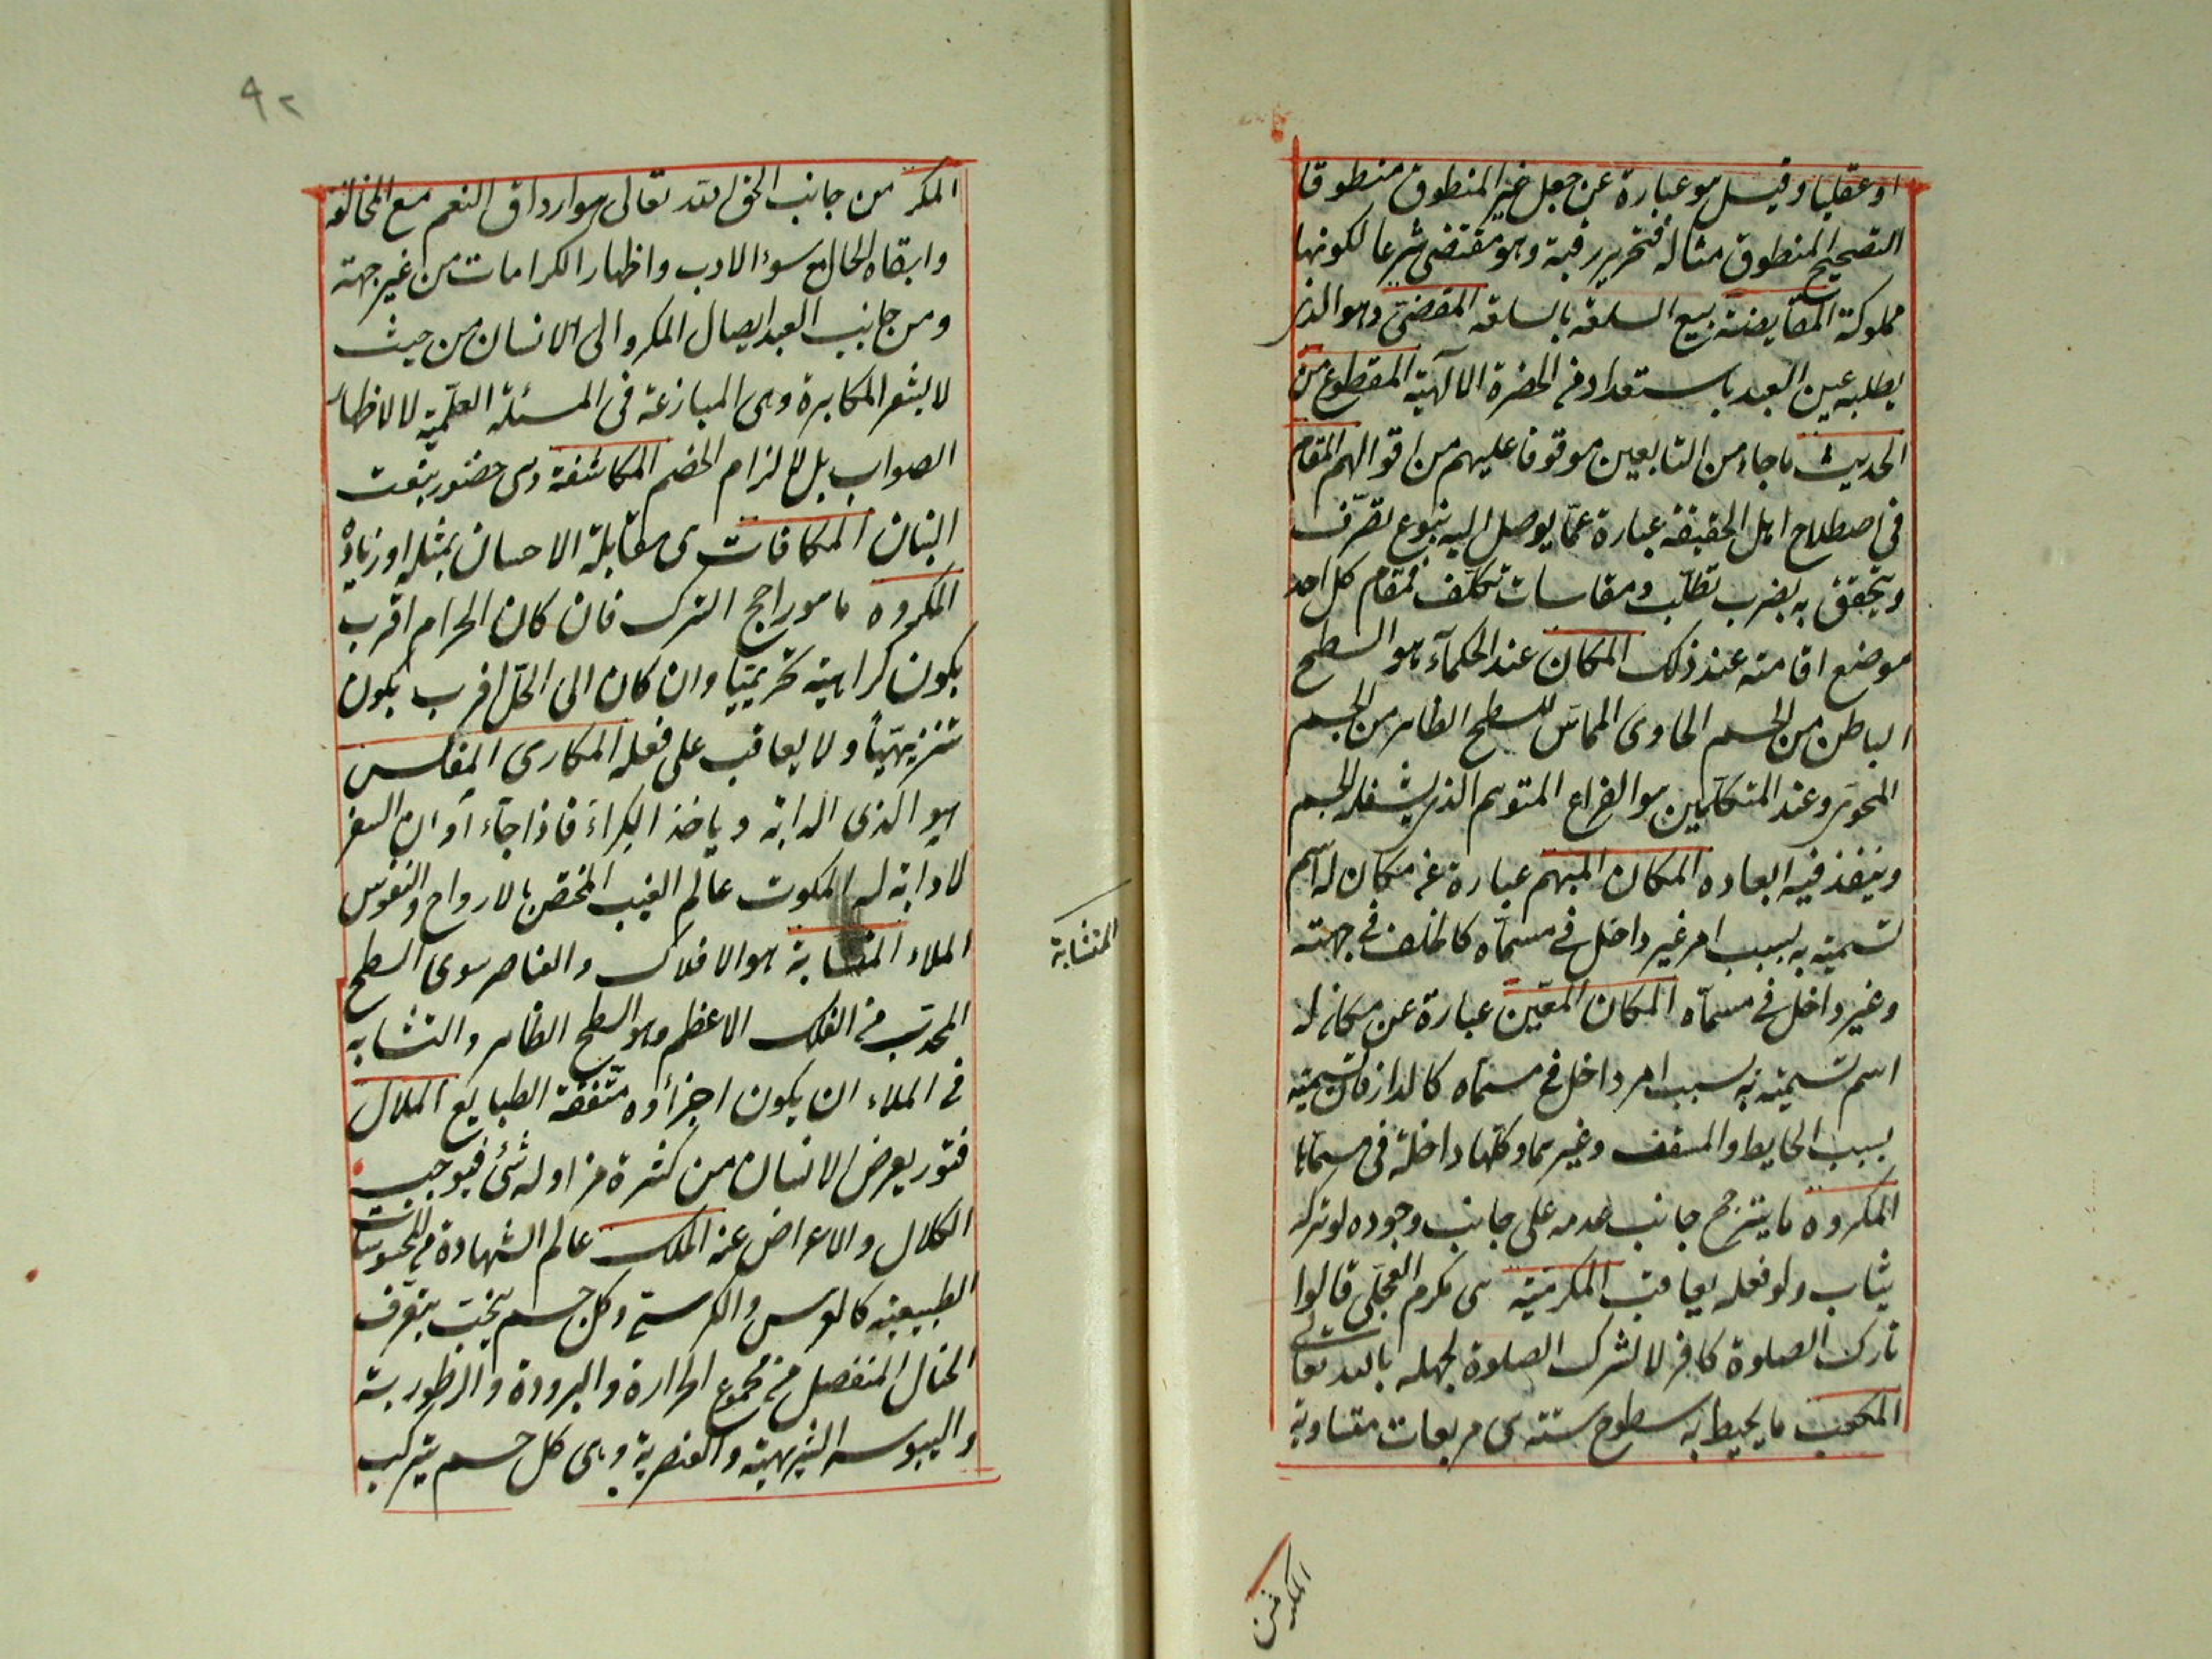 او عقليا وقيل هو عبارة عن جعل غير المنطوق منطوقا
لتصحيح المنطوق مثاله فتحرير رقبة وهو مقتضى شرعا لكونها
مملوكة المقايضة بيع السلعة بالسلعة المقتضى وهو الذى
يطلبه عين العبد باستعداده فى الحضرة الالهية المقطوع من
الحديث ما جاء من التابعين موقوفا عليهم من اقوالهم المقام
فى اصطلاح اهل الحقيقة عبارة عما يوصل اليه بنوع تصرف
ويتحقق به بضرب تطلب ومقاسات تكلف فمقام كل احد
موضع اقامته عند ذلك المكان عند الحكماء هو السطح
الباطن من الجسم الحاوى المماس للسطح الظاهر من الجسم
المحوى وعند المتكلمين هو الفراغ المتوهم الذى يشغله الجسم
وينفذ فيه ابعاده المكان المبهم عبارة عن مكان له اسم
تسميته به بسبب امر غير داخل فى مسماه كالخلف فى جهته
وغير داخل فى مسماه المكان المعين عبارة عن مكان له
اسم تسميته به بسبب امر داخل فى مسماه كالدار فان تسميته
بسبب الحايط والسقف وغيرهما وكلها داخلة فى مسماها
المكروه ما يترجح جانب عدمه على جانب وجوده لو تركه
يثاب ولو فعله يعاقب المكرمية هى مكرم العجلى قالوا
تارك الصلوة كافر لا لترك الصلوة لجهله بالله تعالى
المكعب ما يحيط به سطوح ستة هى مربعات متساوية
المكر من
٩٢
المكر من جانب الحق الله تعالى هو ارداق النعم مع المخالفة
وابقاء الحال مع سوء الادب واظهار الكرامات من غير جهة
ومن جانب العبد ايصال المكروه الى الانسان من حيث
لا يشعر المكابرة وهى المنازعة فى المسئلة العلمية لا لاظهار
الصواب بل لالزام الخصم المكاشفة وهى حضور ينعت
البنان المكافات هى مقابلة الاحسان بمثله او زيادة
المكروه ما هو راجح الترك فان كان الحرام اقرب
يكون كراهية تحريميا وان كان الى الحل اقرب يكون
تنزيهيا ولا يعاقب على فعله المكارى المفلس
هو الذى الدابة وياخذ الكراء فاذا جاء اوان السفر
لا دابة له الملكوت عالم الغيب المختص بالارواح والنفوس
الملاء المتشابة هو الافلاك والعناصر سوى السطح
المتشابة
المحدب من الفلك الاعظم وهو السطح الظاهر والتشابه
فى الملاء ان يكون اجزاؤه متفقة الطبايع الملال
فتور يعرض الانسان من كثرة مزاوله شئ فيوجب
الكلال والاعراض عنه الملك عالم الشهادة من المحسوسات
الطبيعية كالعرش والكرسى وكل جسم يتحيب بتعرف
الخيال المنفصل من مجموع الحرارة والبرودة والرطوبة
واليبوسة التنزيهية والعنصرية وهى كل جسم يتركب